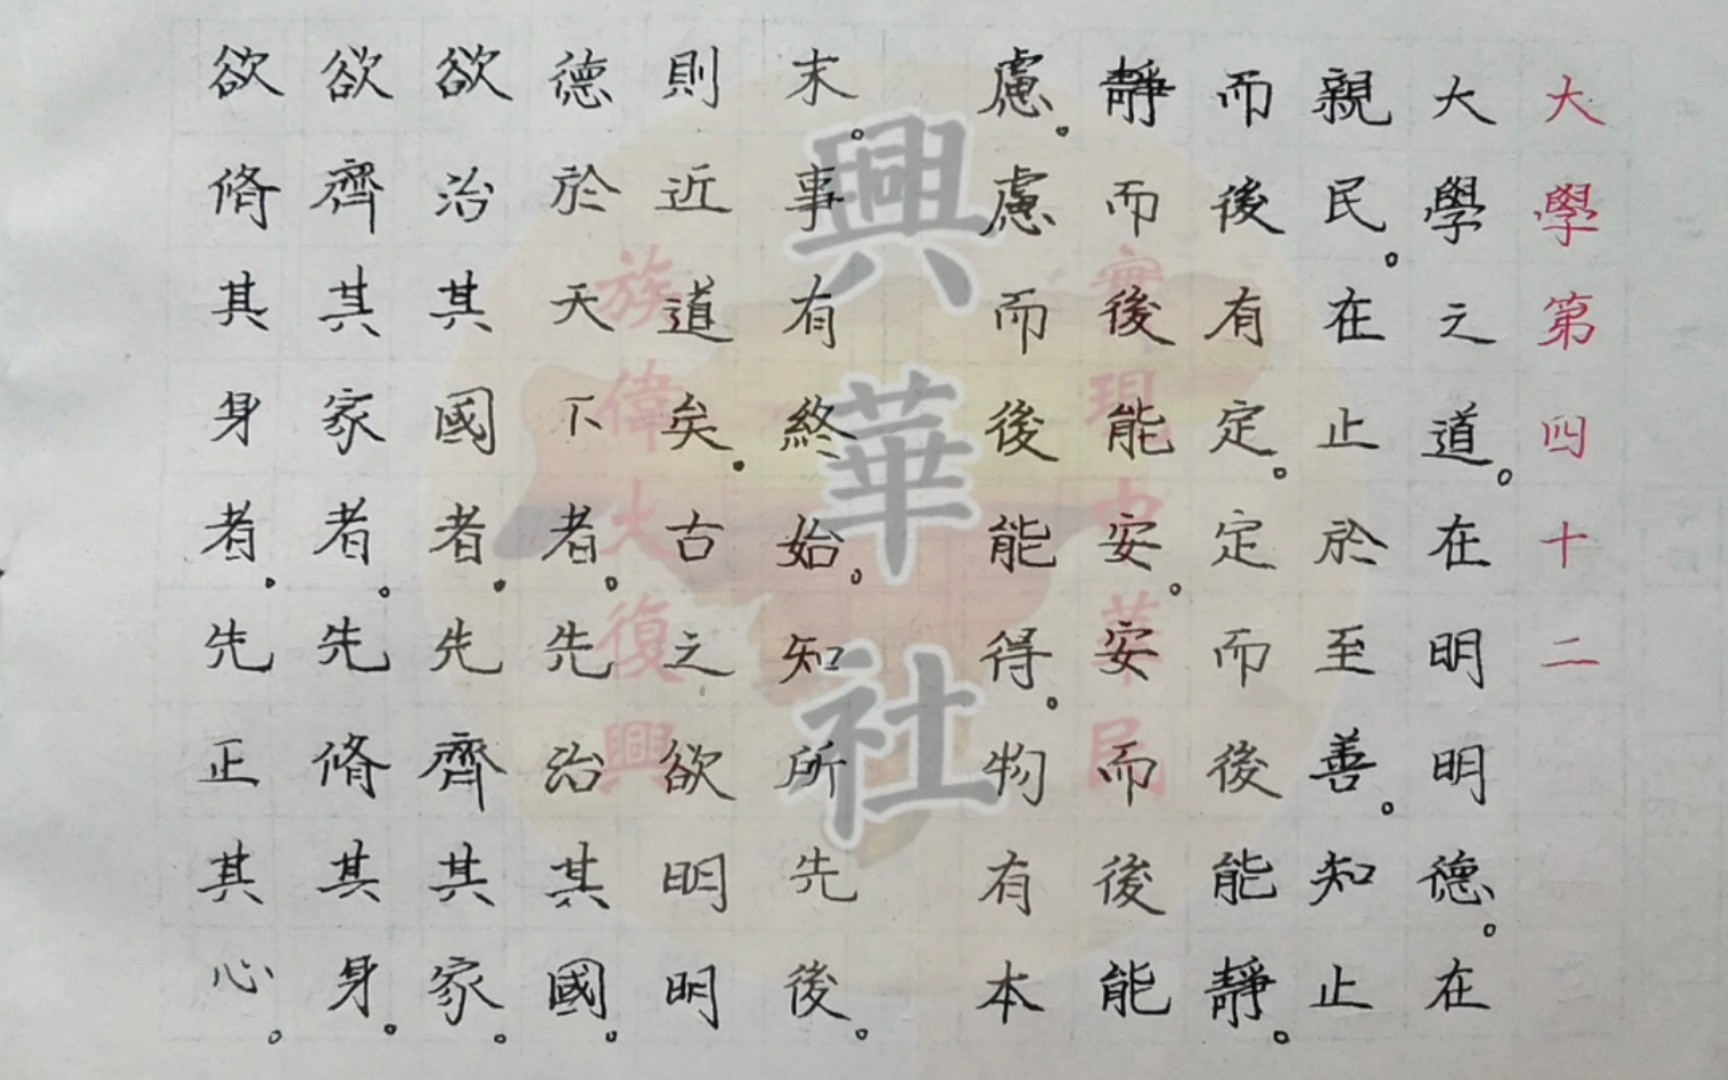 大學第四十二
大學之道。在明明德。在
親民。在止於至善。知止
而後有定。定而後能靜。
靜而後能安。安而後能
慮。慮而後能得。物有本
末。事有終始。知所先後。
則近道矣。古之欲明明
德於天下者。先治其國。
欲治其國者。先齊其家。
欲齊其家者。先脩其身。
欲脩其身者。先正其心。
興華社
實現中華民
族偉大復興